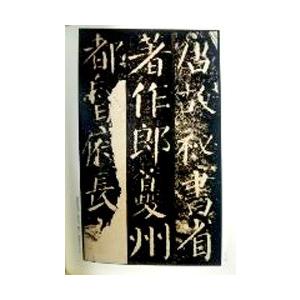 唐故秘書省
著作郎夔州
都督府長